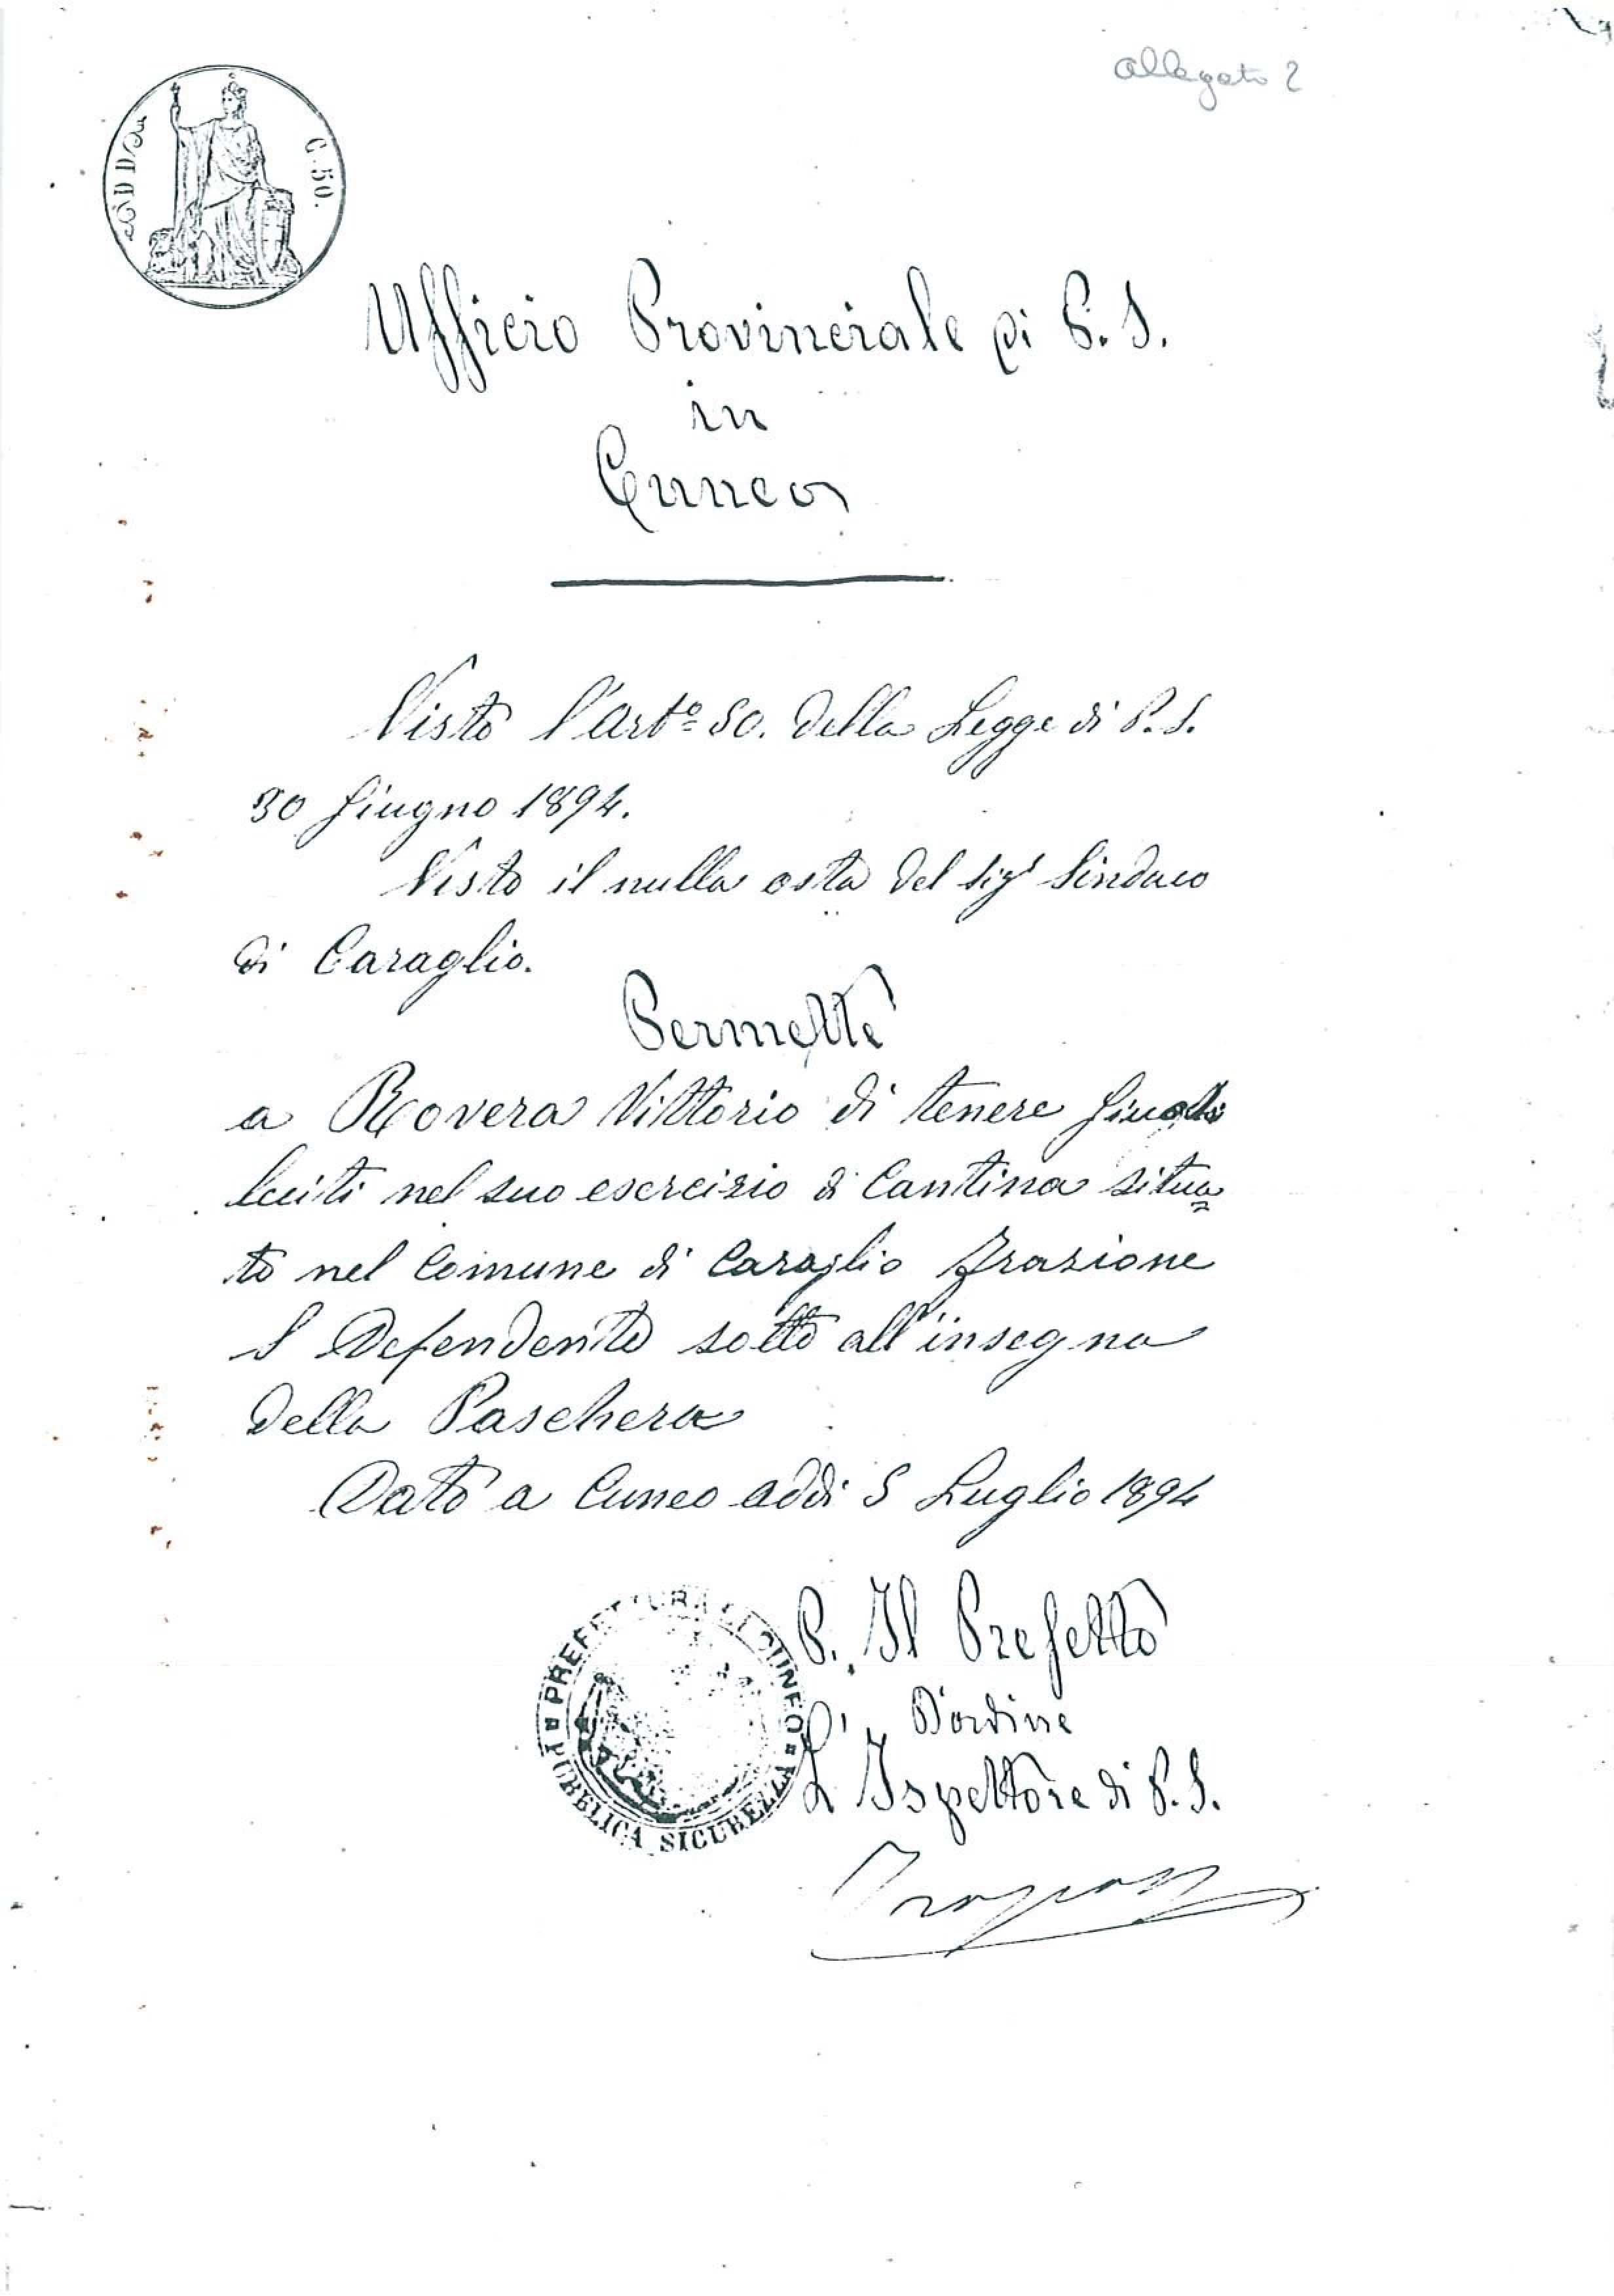 allegato 2
C. 50.
Ufficio Provinciale di P. S.
in
Cuneo
Visto l'arto 50. della Legge di P. S.
30 Giugno 1894.
Visto il nulla osta del Sigr Sindaco
di Caraglio.
Permette
a Rovera Vittorio di tenere Giuochi
leciti nel suo esercizio di Cantina situa
to nel Comune di Caraglio frazione
S Defendente sotto all'insegna
della Paschera
Dato a Cuneo addi 5 Luglio 1894
P. Il Prefetto
D'ordine
L'Ispettore di P. S.
PREFETTURA DI CUNEO
PUBBLICA SICUREZZA